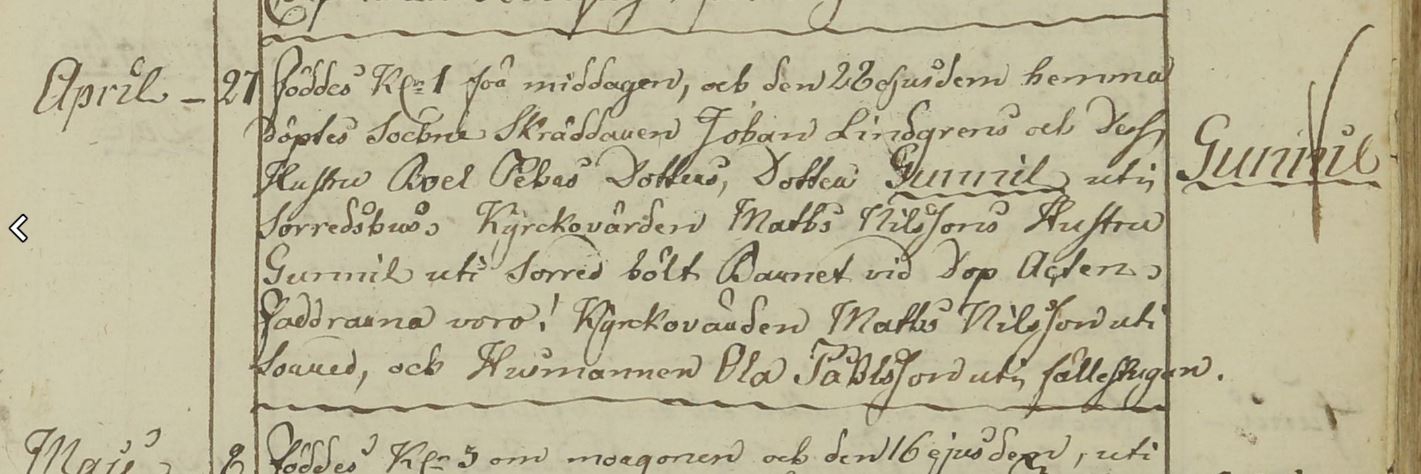 April – 27 Föddes Kl:n 1 för middagen, och den 28 ejusdem hemma
döptes Sockne Skräddaren Johan Lindgrens och Dess
Hustru Boel Pehrs Dotters, Dotter Gunnil uti Gunnil
Sorredshus, Kÿrckovärden Maths Nilssons Hustru
Gunnil uti Sorred hölt Barnet vid Dop Acten,
Faddrarna voro! Kÿrckovärden Maths Nilsson uti
Sorred, och Husmannen Ola Påhlsson uti fällestugan.
8 Föddes Kl:n 3 om morgonen och den 16 ejusdem, uti